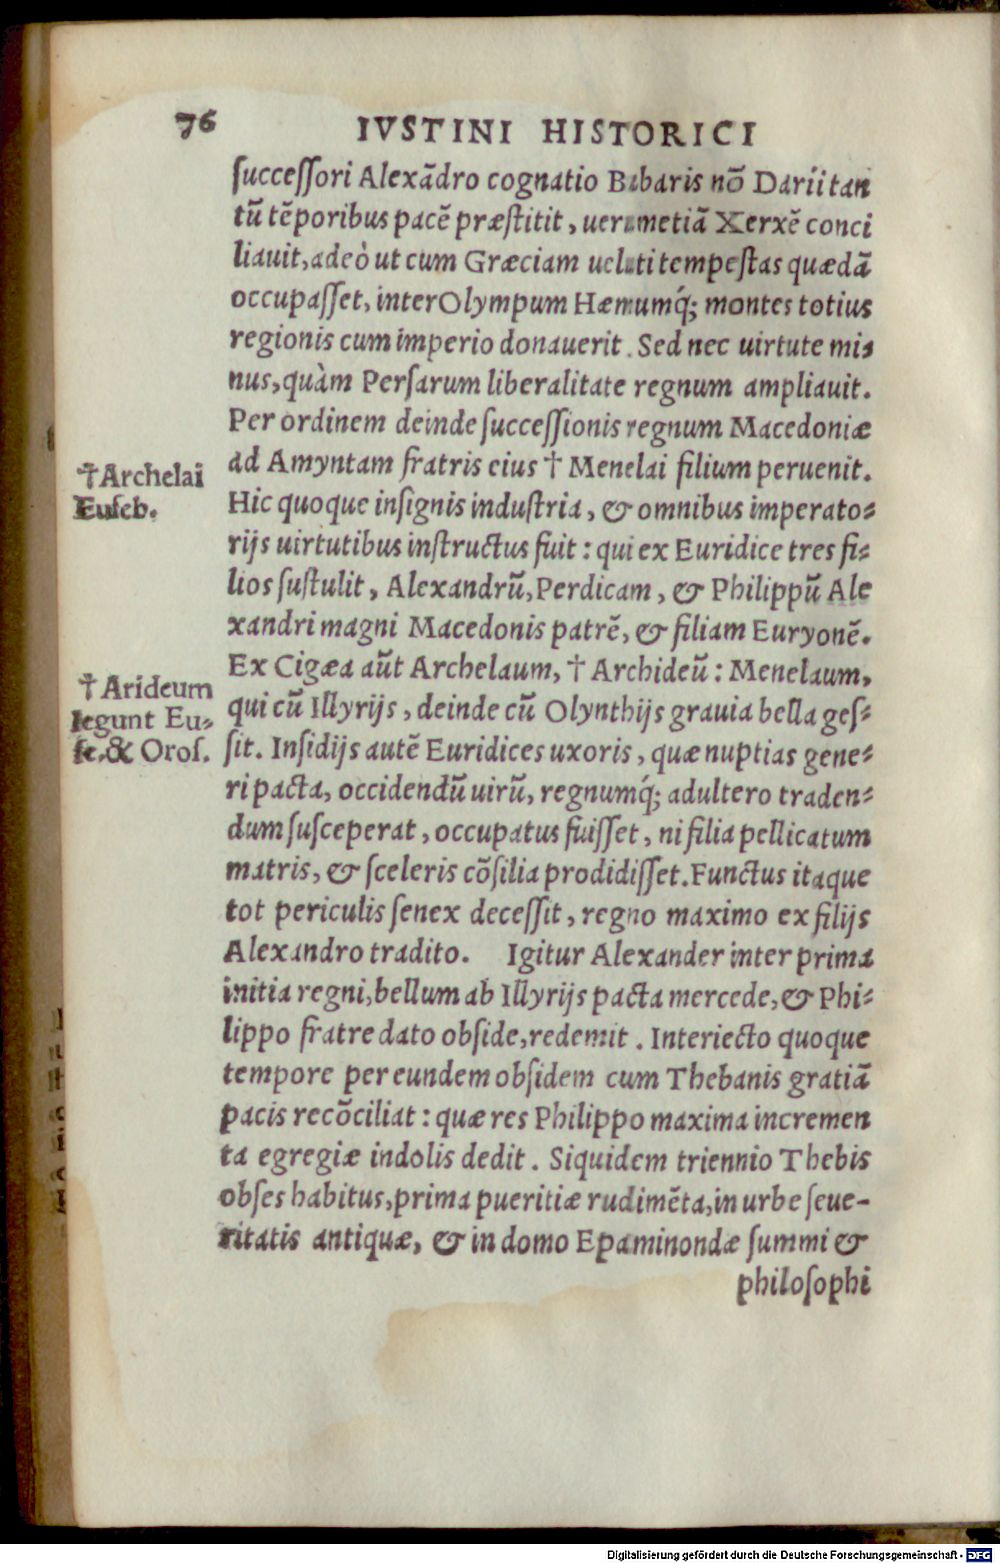 76 IVSTINI HISTORICI
ſucceſſori Alexãdro cognatio Babaris nõ Darii tan
tũ tẽporibus pacẽ præſtitit, uerumetiã Xerxẽ conci
liauit, adeò ut cum Græciam ueluti tempeſtas quædã
occupaſſet, inter Olympum Hæmumq́; montes totius
regionis cum imperio donauerit. Sed nec uirtute mi⸗
nus, quàm Perſarum liberalitate regnum ampliauit.
Per ordinem deinde ſucceſſionis regnum Macedoniæ
ad Amyntam fratris eius † Menelai filium peruenit.
†Archelai
Euſeb.
Hic quoque inſignis induſtria, & omnibus imperato⸗
rijs uirtutibus inſtructus fuit: qui ex Euridice tres fi⸗
lios ſuſtulit, Alexandrũ, Perdicam, & Philippũ Ale
xandri magni Macedonis patrẽ, & filiam Euryonẽ.
Ex Cigæa aũt Archelaum, † Archideũ: Menelaum,
†Arideum
legunt Eu⸗
ſe. & Oroſ.
qui cũ Illyrijs, deinde cũ Olynthijs grauia bella geſ⸗
ſit. Inſidijs autẽ Euridices uxoris, quæ nuptias gene⸗
ri pacta, occidendũ uirũ, regnumq́; adultero traden⸗
dum ſuſceperat, occupatus fuiſſet, ni filia pellicatum
matris, & ſceleris cõſilia prodidiſſet. Functus itaque
tot periculis ſenex deceſſit, regno maximo ex filijs
Alexandro tradito. Igitur Alexander inter prima
initia regni, bellum ab Illyrijs pacta mercede, & Phi⸗
lippo fratre dato obſide, redemit. Interiecto quoque
tempore per eundem obſidem cum Thebanis gratiã
pacis recõciliat: quæ res Philippo maxima incremen
ta egregiæ indolis dedit. Siquidem triennio Thebis
obſes habitus, prima pueritiæ rudimẽta, in urbe ſeue-
ritatis antiquæ, & in domo Epaminondæ ſummi &
philoſophi
Digitalisierung gefördert durch die Deutsche Forschungsgemeinschaft - DFG